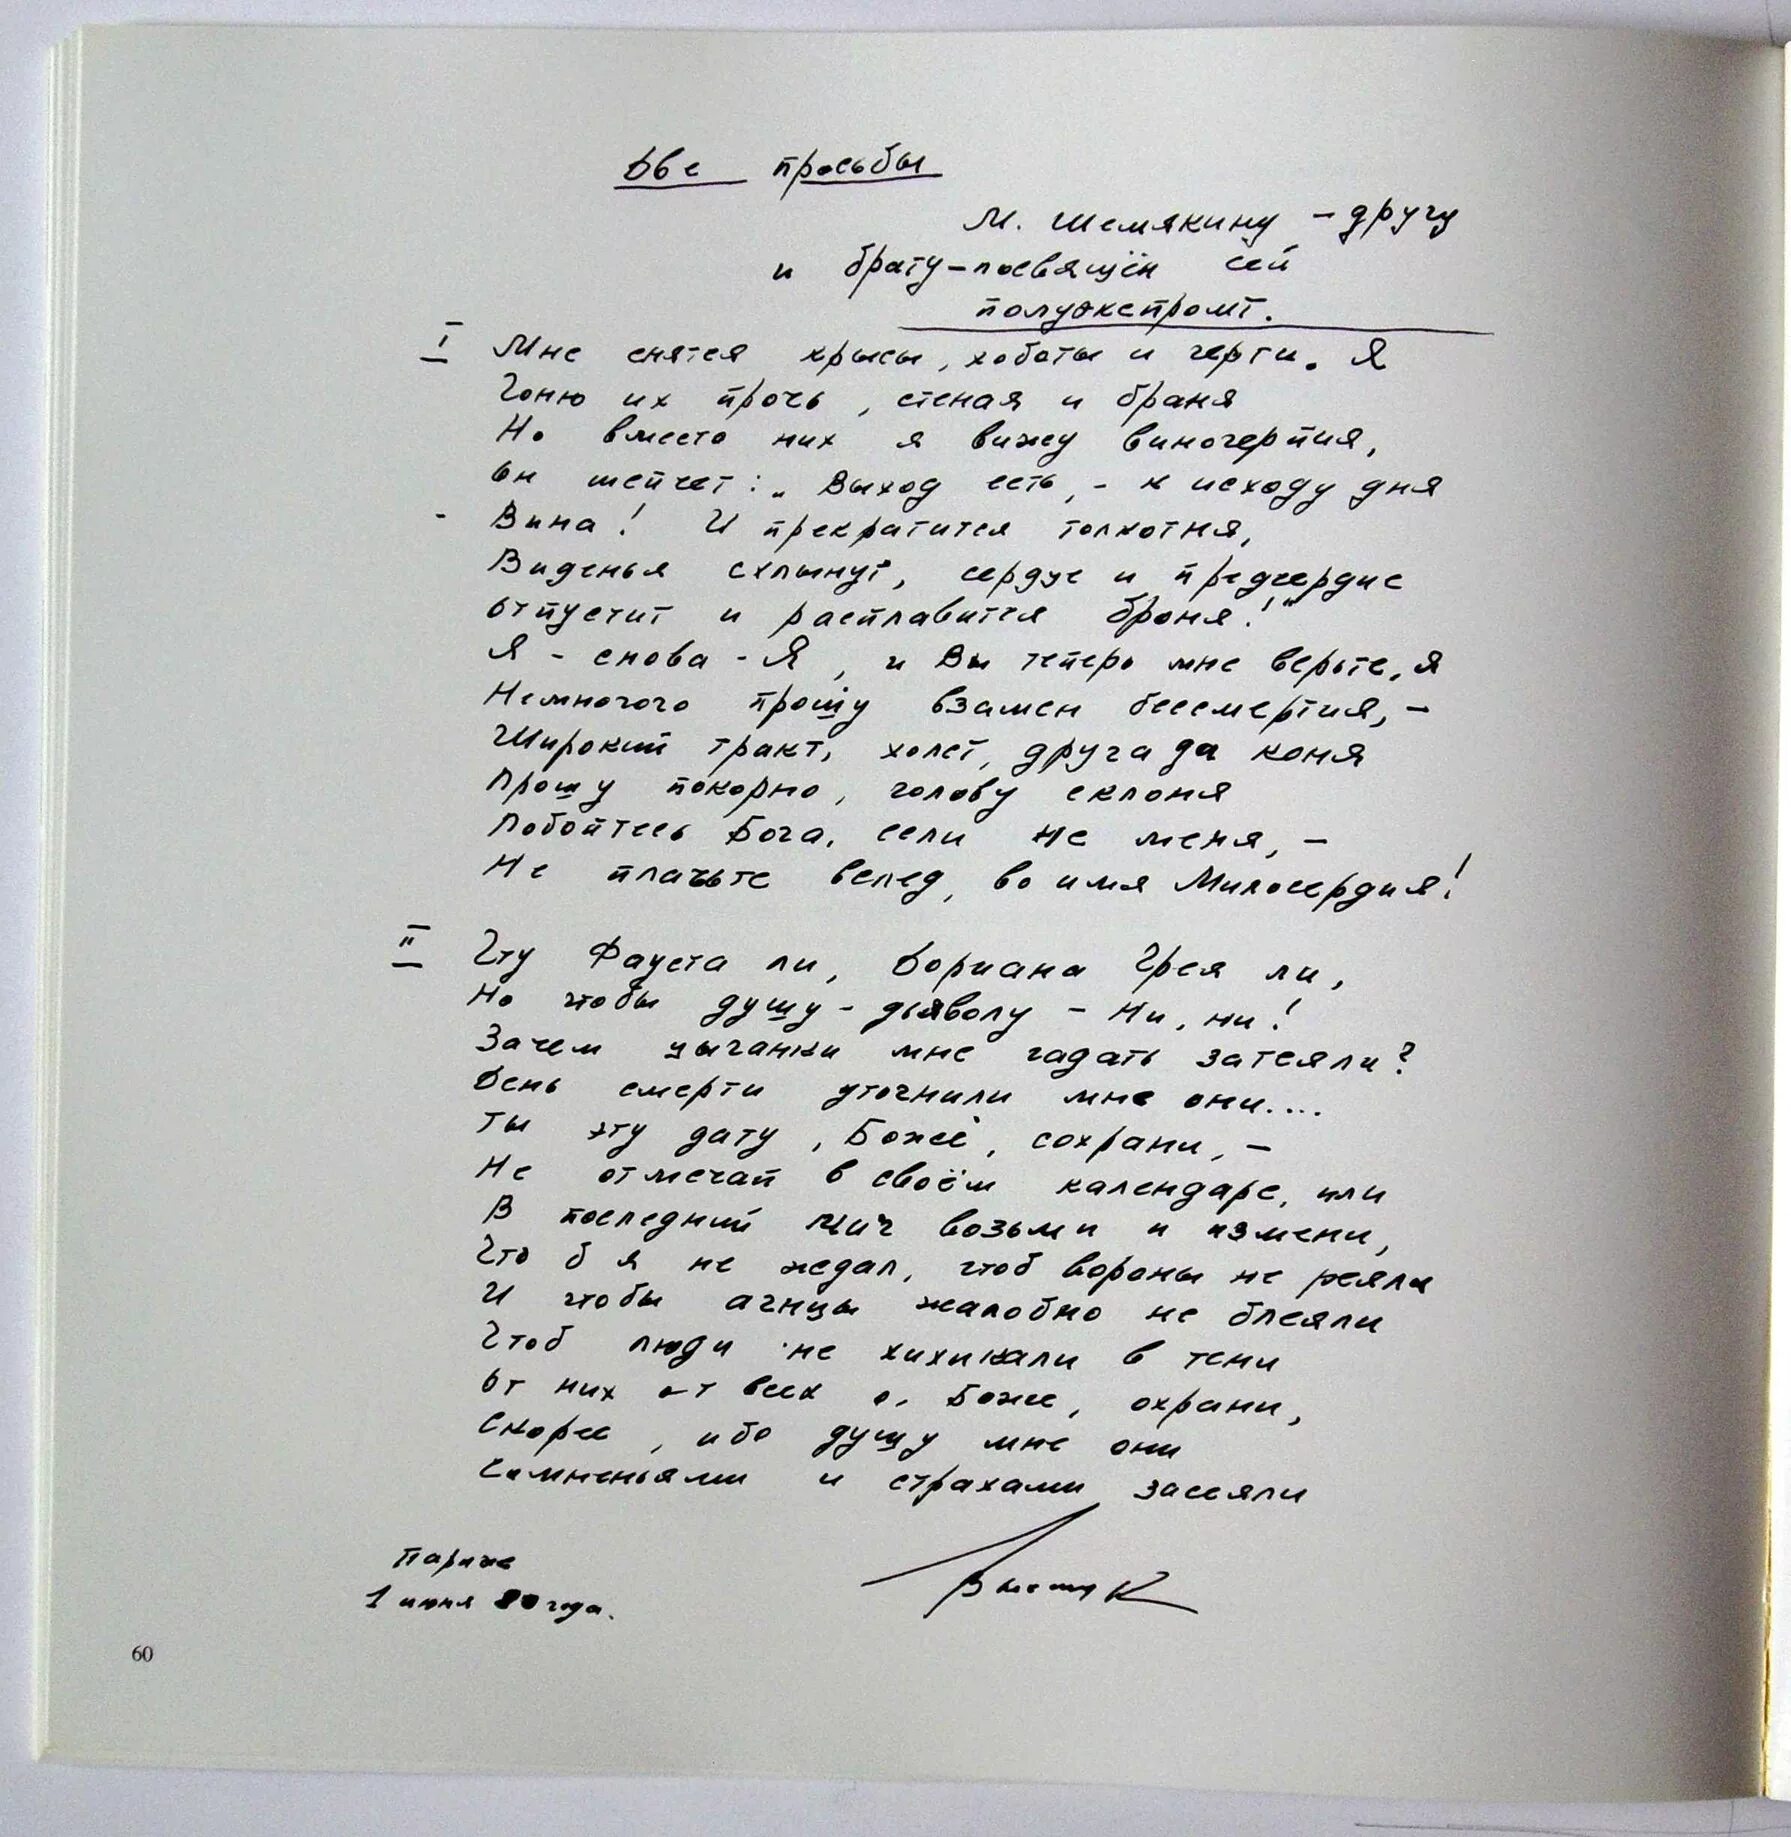 Две просьбы
М. Шемякину – другу
и брату – посвящён сей
полуэкспромт.
I Мне снятся крысы, хоботы и черти. Я
Гоню их прочь, стеная и браня
Но вместо них я вижу виночерпия,
Он шепчет: „Выход есть, – к исходу дня
- Вина! И прекратится толкотня,
Виденья схлынут, сердце и предсердие
отпустит и расплавится броня!"
Я - снова - Я, и Вы теперь мне верьте, я
Немногого прошу взамен бессмертия, –
Широкий тракт, холст, друга да коня
Прошу покорно, голову склоня
Побойтесь Бога, если не меня, –
Не плачьте вслед, во имя Милосердия!
II Чту Фауста ли, Дориана Грея ли,
Но чтобы душу - дьяволу – Ни, ни!
Зачем цыганки мне гадать затеяли?
День смерти уточнили мне они....
Ты эту дату, Боже, сохрани, –
Не отмечай в своём календаре, или
В последний миг возьми и измени,
Что б я не ждал, чтоб вороны не реяли
И чтобы агнцы жалобно не блеяли
Чтоб люди не хихикали в тени
От них от всех о, Боже, охрани,
Скорее, ибо душу мне они
Сомненьями и страхами засеяли
Париж
1 июня 80 года.
60